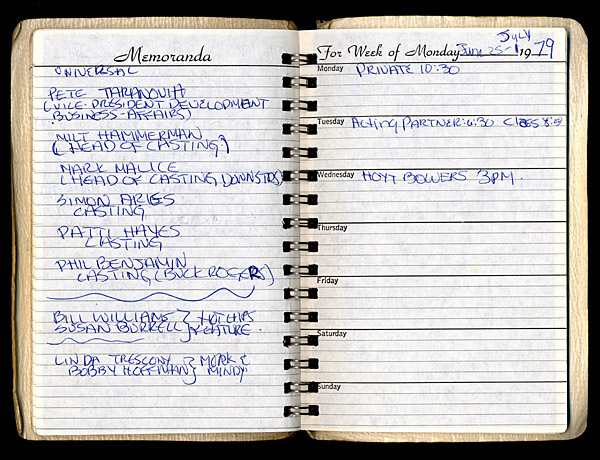 Memoranda
UNIVERSAL
PETE TARANOVITH
(VICE-PRESIDENT DEVELOPMENT
BUSINESS-AFFAIRS)
MILT HAMMERMAN
(HEAD OF CASTING)
MARK MALICE
(HEAD OF CASTING, DOWNSTRS)
SIMON ARIES
CASTING
PATTI HAYES
CASTING
PHIL BENJAMIN
CASTING (BUCK ROGERS)
BILL WILLIAMS } HOT CHIPS
SUSAN BURRELL } FEATURE.
LINDA TRESCONY } MORK &
BOBBY HOFFMAN } MINDY
For Week of Monday June 25-JULY 1 1979
Monday PRIVATE 10:30
Tuesday ACTING PARTNER: 6:30 CLASS
Wednesday HOYT BOWERS 3PM.
Thursday
Friday
Saturday
Sunday